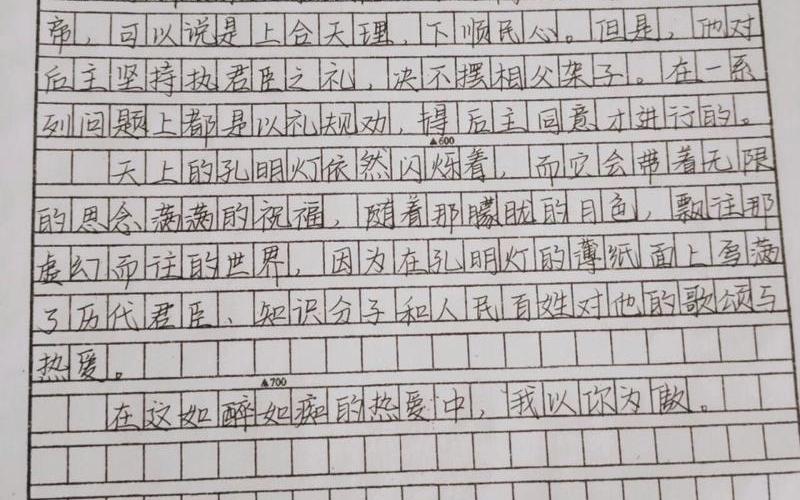 帝，可以说是上合天理，下顺民心。但是，他对
后主坚持执君臣之礼，决不摆相父架子。在一系
列问题上都是以礼规劝，得后主同意才进行的。
▲600
天上的孔明灯依然闪烁着，而它会带着无限
的思念满满的祝福，随着那朦胧的月色，飘往那
虚幻而往的世界，因为在孔明灯的薄纸面上写满
了历代君臣、知识分子和人民百姓对他的歌颂与
热爱。
▲700
在这如醉如痴的热爱中，我以你为傲。